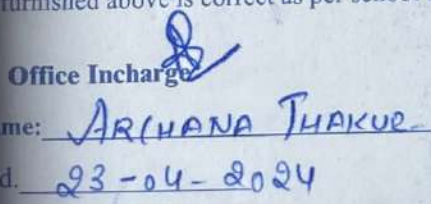 furnished above is correct as per
Office Incharge
me: ARCHANA THAKUR
d. 23-04-2024